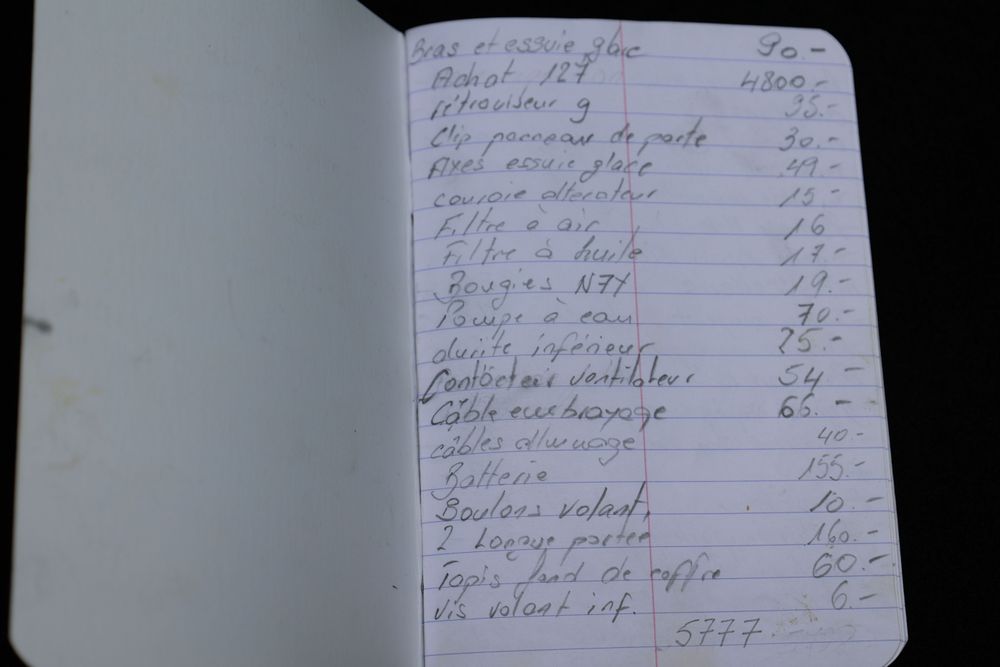 Bras et essuie glace 90.-
Achat 127 4800.-
rétroviseur g 95.-
Clip panneau de porte 30.-
Axes essuie glace 49.-
courroie alternateur 15.-
Filtre à air 16
Filtre à huile 17.-
Bougies N7Y 19.-
Pompe à eau 70.-
durite inférieur 25.-
Contacteur ventilateur 54 -
Câble embrayage 66.-
câbles allumage 40.-
Batterie 155.-
Boulons volant. 10.-
2 Longue portée 160.-
Tapis fond de coffre 60.-
vis volant inf. 6.-
5777